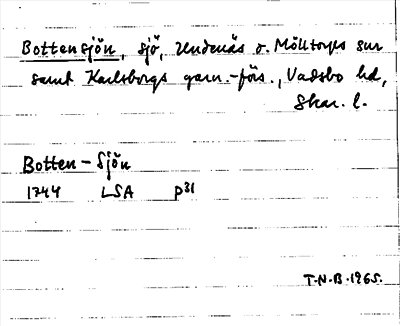 Bottensjön, sjö, Undenäs o. Mölltorps snr
samt Karlsborgs garn.-förs., Vadsbo hd,
Skar. l.
Botten-Sjön
1744 LSA P31
T.N.B. 1965.